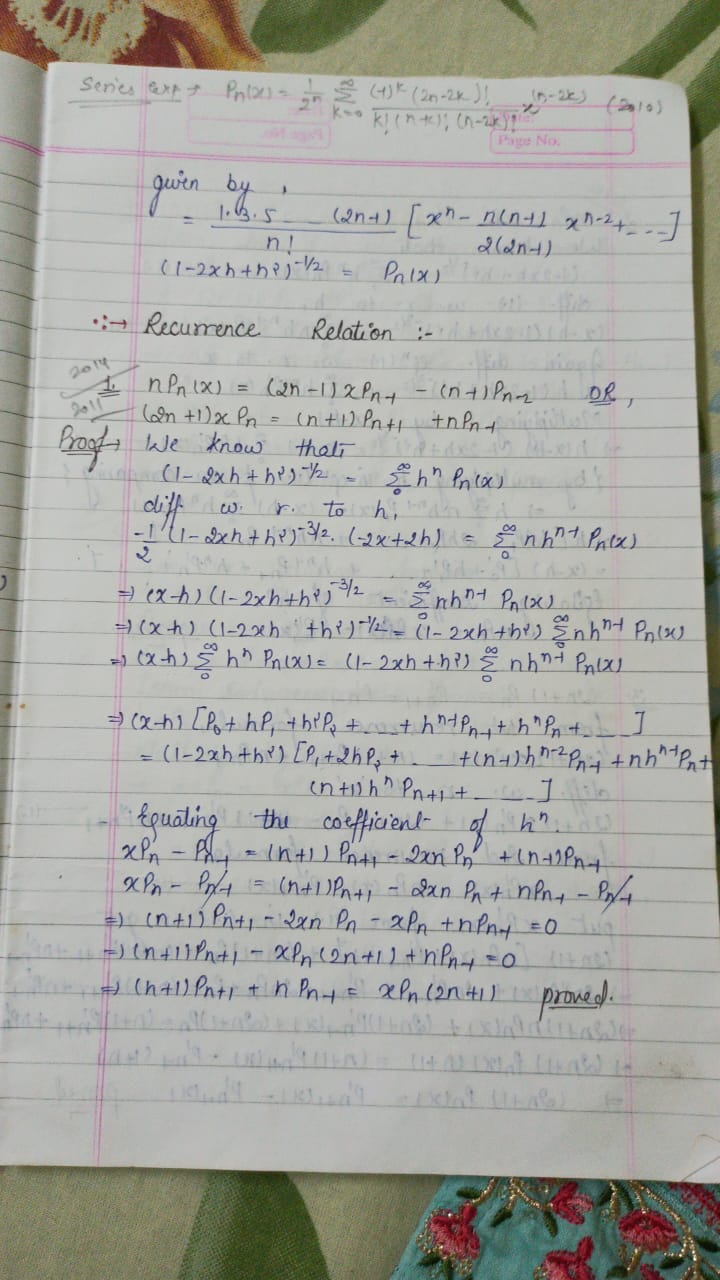 Series exp → Pn(x) = 1/2ⁿ ∞Σk=0 (-1)ᵏ (2n-2k)! / k! (n-k)! (n-2k)! x^(n-2k) (2010)
Page No.
given by,
= 1.3.5 _ _ (2n-1) / n! [xⁿ - n(n-1) / 2(2n-1) xⁿ⁻² + _ _ _]
(1-2xh+h²)^-1/2 = Pn(x)
∴→ Recurrence Relation :-
2014
1. nPn(x) = (2n-1)xPn-1 - (n-1)Pn-2 OR,
2011
(2n+1)xPn = (n+1)Pn+1 + nPn-1
Proof → We know that
(1-2xh+h²)^-1/2 = ∞Σ0 hⁿ Pn(x)
diff w. r. to h,
-1/2 (1-2xh+h²)^-3/2. (-2x+2h) = ∞Σ0 nhⁿ⁻¹ Pn(x)
⇒ (x-h) (1-2xh+h²)^-3/2 = ∞Σ0 nhⁿ⁻¹ Pn(x)
⇒ (x-h) (1-2xh+h²)^-1/2 = (1-2xh+h²) ∞Σ0 nhⁿ⁻¹ Pn(x)
⇒ (x-h) ∞Σ0 hⁿ Pn(x) = (1-2xh+h²) ∞Σ0 nhⁿ⁻¹ Pn(x)
⇒ (x-h) [P0 + hP1 + h²P2 + _ _ + hⁿ⁻¹Pn-1 + hⁿPn + _ _ _]
= (1-2xh+h²) [P1 + 2hP2 + _ _ + (n-1)hⁿ⁻²Pn-1 + nhⁿ⁻¹Pn +
(n+1)hⁿ Pn+1 + _ _ _]
Equating the coefficient of hⁿ.
xPn - Pn-1 = (n+1) Pn+1 - 2xn Pn + (n-1)Pn-1
xPn - Pn-1 = (n+1)Pn+1 - 2xn Pn + nPn-1 - Pn-1
⇒ (n+1)Pn+1 - 2xn Pn - xPn + nPn-1 = 0
⇒ (n+1)Pn+1 - xPn (2n+1) + nPn-1 = 0
⇒ (n+1)Pn+1 + n Pn-1 = xPn (2n+1) proved.